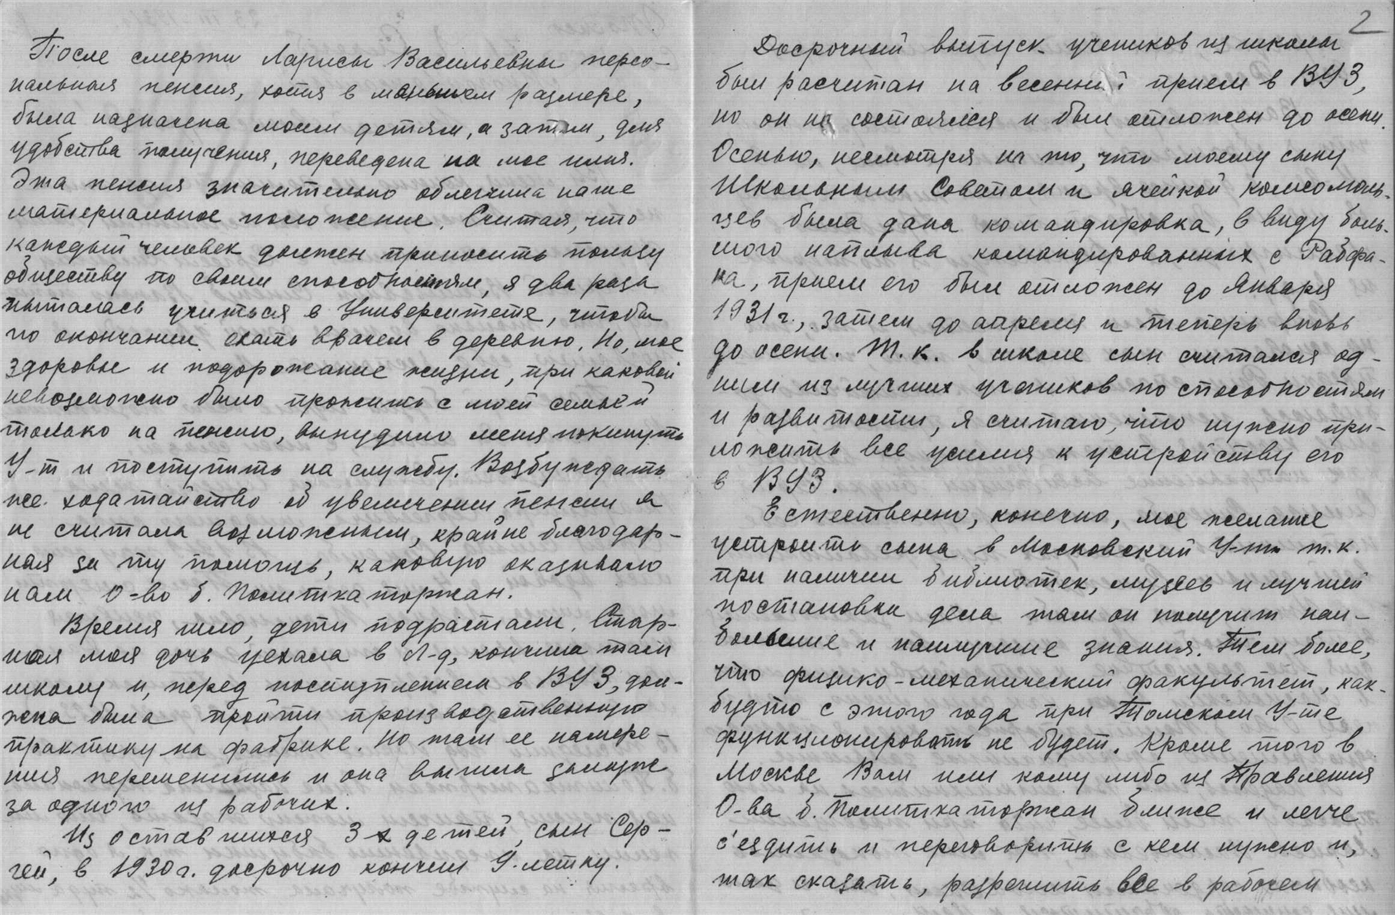 После смерти Ларисы Васильевны персо-
нальная пенсия, хотя в меньшем размере,
была назначена моим детям, а затем, для
удобства получения, переведена на мое имя.
Эта пенсия значительно облегчила наше
материальное положение. Считая, что
каждый человек должен приносить пользу
обществу по своим способностям, я два раза
пыталась учиться в Университете, чтобы
по окончании ехать врачем в деревню. Но, мое
здоровье и подорожание жизни, при каковой
невозможно было прожить с моей семьей
только на пенсию, вынудило меня покинуть
У-т и поступить на службу. Возбуждать
же ходатайство об увеличении пенсии я
не считала возможным, крайне благодар-
ная за ту помощь, каковую оказывало
нам О-во б. Политкаторжан.
Время шло, дети подрастали. Стар-
шая моя дочь уехала в Л-д, кончила там
школу и, перед поступлением в ВУЗ, дол-
жна была пройти производственную
практику на фабрике. Но там ее намере-
ния переменились и она вышла замуж
за одного из рабочих.
Из оставшихся 3-х детей, сын Сер-
гей, в 1930 г. досрочно кончил 9-летку.
2
Досрочный выпуск учеников из школы
был расчитан на весенний прием в ВУЗ,
но он не состоялся и был отложен до осени.
Осенью, несмотря на то, что моему сыну
Школьным Советом и ячейкой комсомоль-
цев была дана командировка, в виду боль-
шого наплыва командированных с Рабфа-
ка, прием его был отложен до Января
1931 г., затем до апреля и теперь вновь
до осени. Т.к. в школе сын считался од-
ним из лучших учеников по способностям
и развитости, я считаю, что нужно при-
ложить все усилия к устройству его
в ВУЗ.
Естественно, конечно, мое желание
устроить сына в Московский У-т т.к.
при наличии библиотек, музеев и лучшей
постановки дела там он получит наи-
большие и наилучшие знания. Тем более,
что физико-механический факультет, как-
будто с этого года при Томском У-те
функционировать не будет. Кроме того в
Москве Вам или кому либо из Правления
О-ва б. Политкаторжан ближе и легче
с'ездить и переговорить с кем нужно и,
так сказать, разрешить все в рабочем